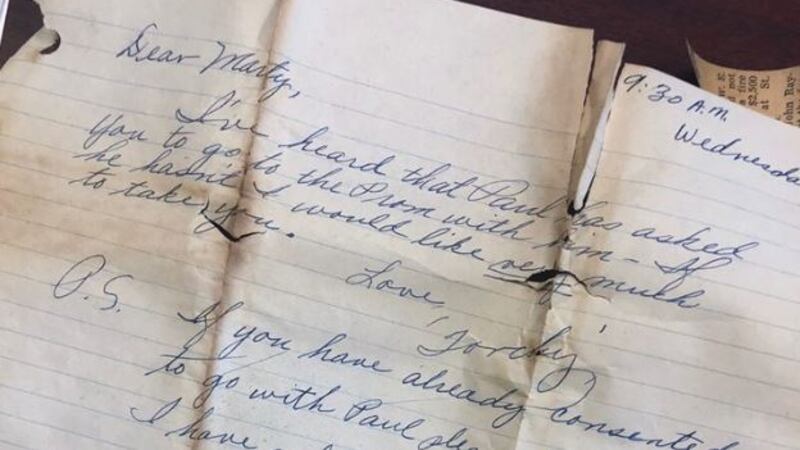 9:30 A.M.
Wednesda
Dear Marty,
I've heard that Paul has asked
you to go to the Prom with him – If
he hasn't I would like very much
to take you.
Love,
Torchy
P.S. If you have already consented
to go with Paul
I have
er. E.
not
a fire
$2,500
at St.
ohn Ray-